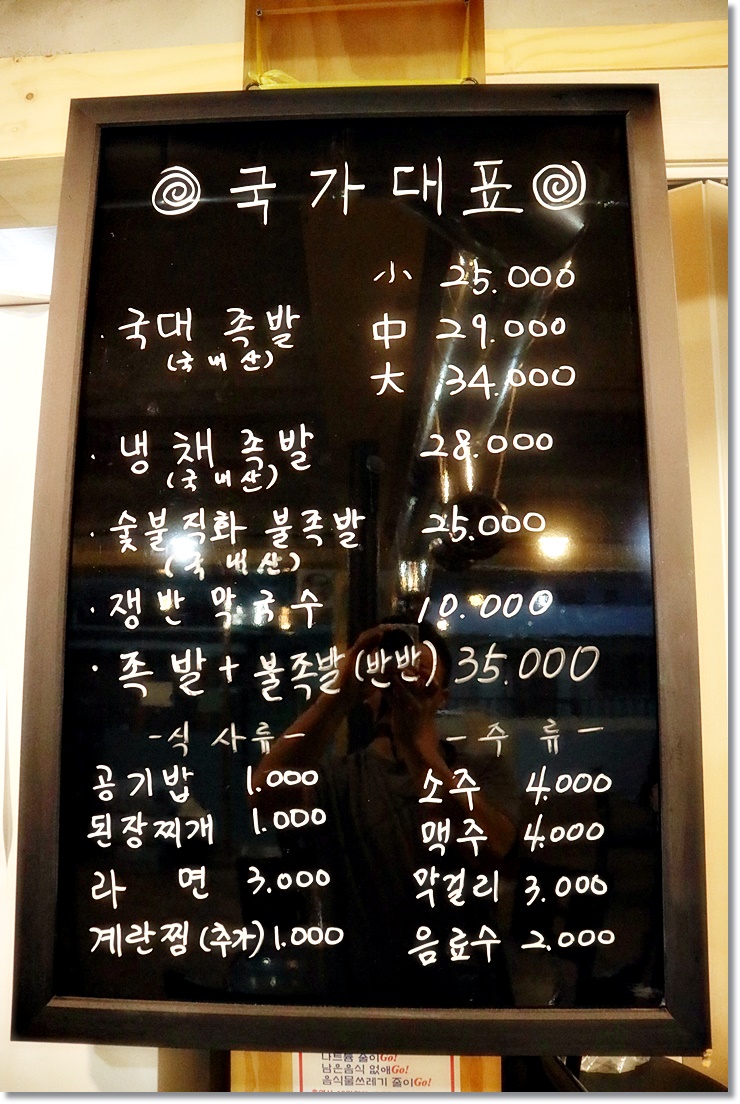 국가대표
小 25.000
국대 족발 中 29.000
(국내산)
大 34.000
냉채 족발 28.000
(국내산)
숯불직화 불족발 25.000
(국내산)
쟁반 막국수 10.000
족발+불족발(반반) 35.000
-식사류- -주류-
공기밥 1.000 소주 4.000
된장찌개 1.000 맥주 4.000
라면 3.000 막걸리 3.000
계란찜(추가) 1.000 음료수 2.000
나트륨 줄이Go!
남은음식 없애Go!
음식물쓰레기 줄이Go!